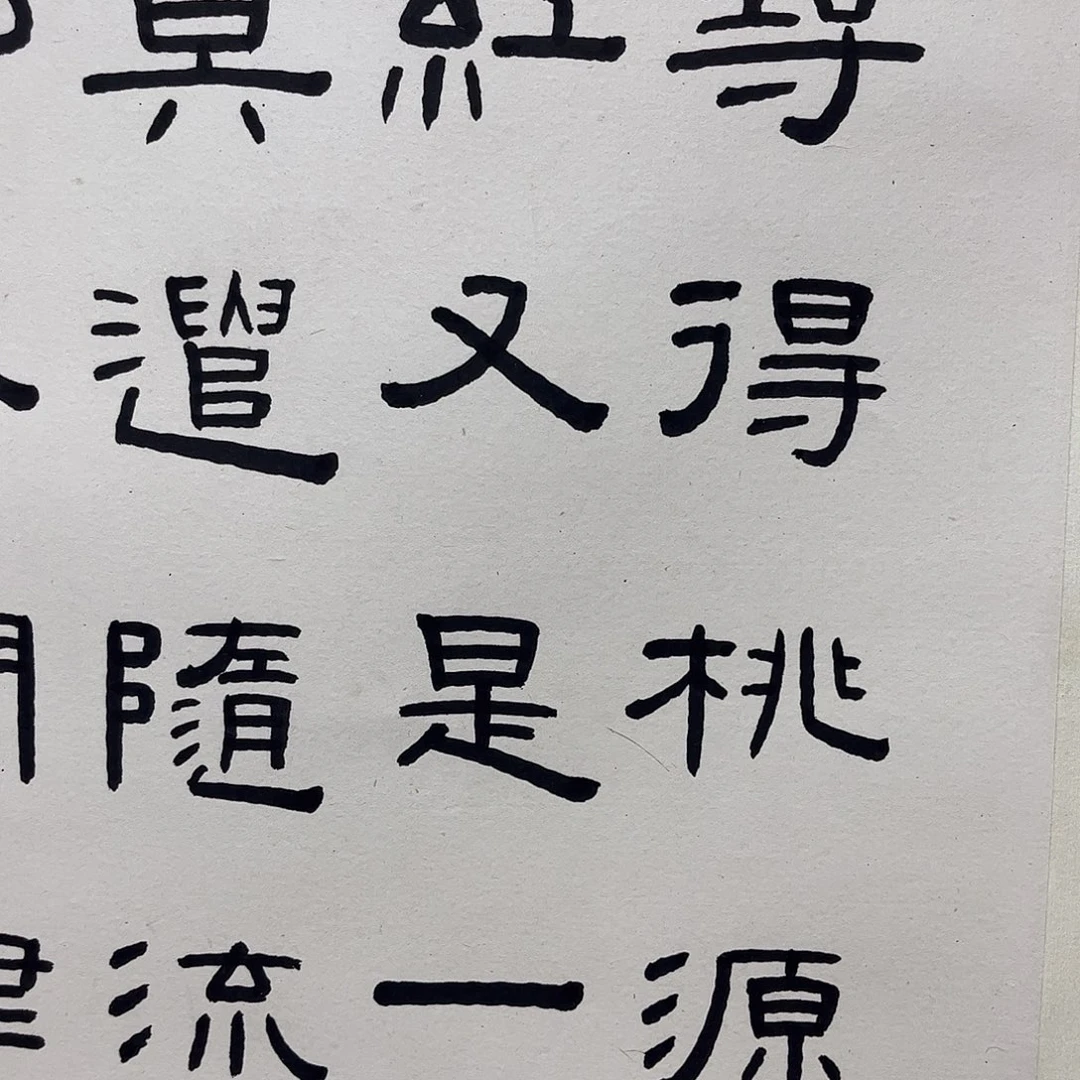 尋得桃源
紅又是一
莫遣隨流